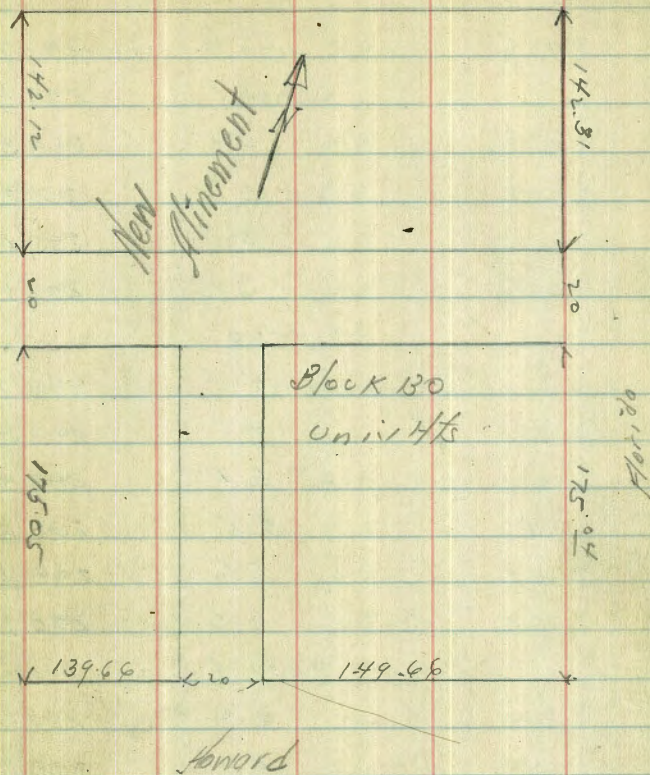 142.12
142.31
New
Alinement
20
20
Block 130
Univ Hts
Florida
175.05
175.04
139.66
20
149.66
Howard